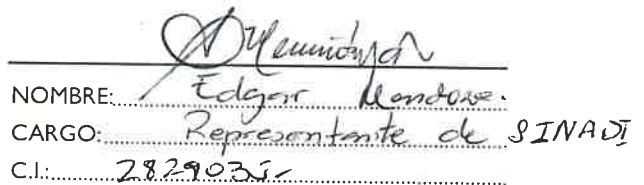 NOMBRE: Edgar Mendoza.
CARGO: Representante de SINADI
C.I.: 2829035-